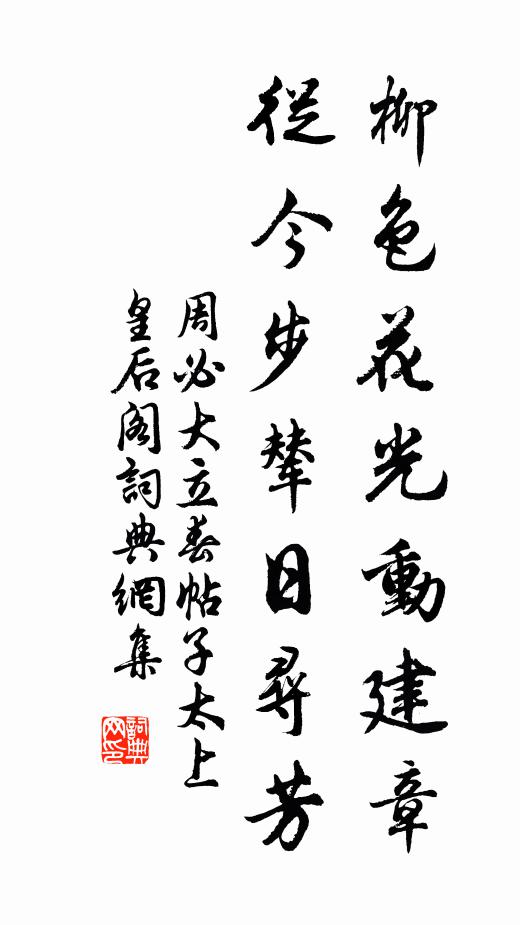 柳色花光動建章
從今步輦日尋芳
周必大立春帖子太上
皇后閣詞典網集
詞典網印